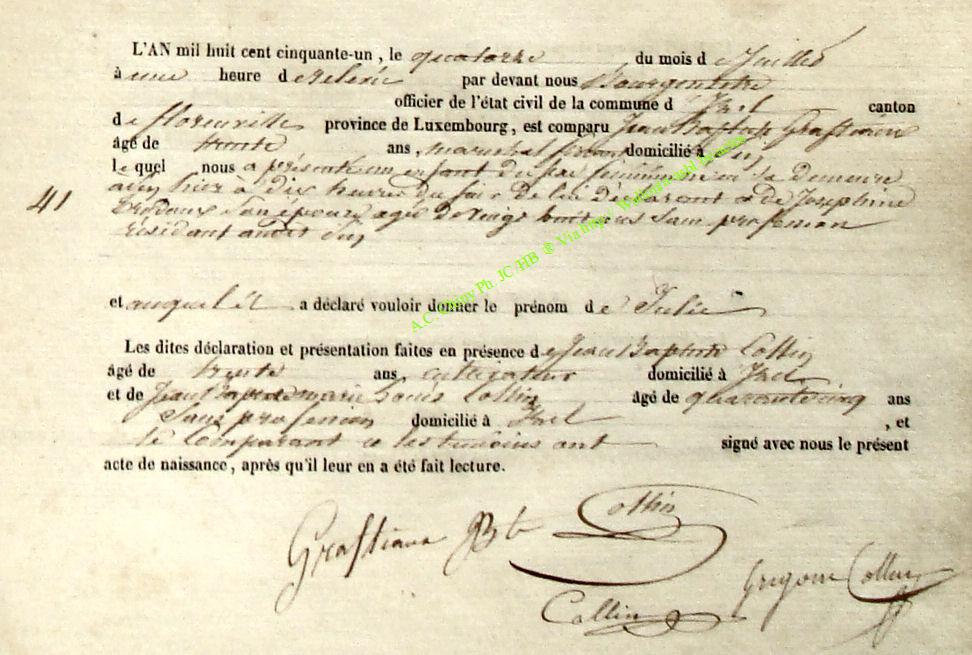 L'AN mil huit cent cinquante-un, le quatorze du mois de Juillet
à une heure de relevée par devant nous Bourgmestre
officier de l'état civil de la commune d' Izel canton
de florenville province de Luxembourg, est comparu Jean Baptiste Grastiaux
âgé de trente ans, marechal ferrant domicilié à
lequel nous a présenté un enfant du sexe féminin né en sa demeure
hier à dix heures du soir de lui déclarant et de Josephine
son épouse agée de vingt huit ans sans profession
résidant audit
41
et auquel il a déclaré vouloir donner le prénom de Julie
Les dites déclaration et présentation faites en présence de Jean Baptiste Collin
âgé de trente ans, cultivateur domicilié à Izel
et de Jean Baptiste marie Louis Collin âgé de quarante cinq ans
Sans profession domicilié à Izel , et
le Comparant et les temoins ont signé avec nous le présent
acte de naissance, après qu'il leur en a été fait lecture.
Grastiaux JBte Collin
Collin Grégoire Collin
A.C. Ph. JC HB ® Via http://